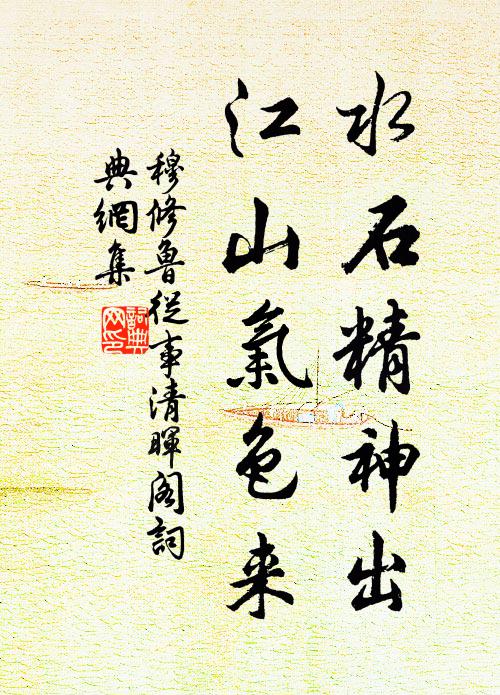 水石精神出
江山氣色来
穆修魯從事清暉阁詞
典網集
詞典
网印